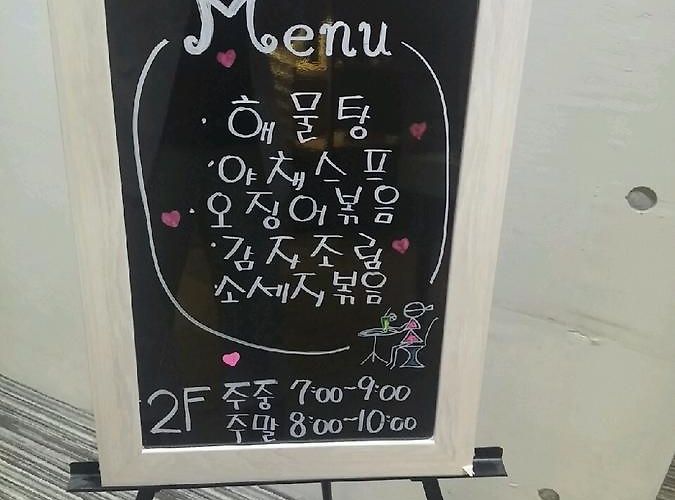 Menu
· 해물탕
· 야채스프
· 오징어볶음
· 감자조림
소세지볶음
2F 주중 7:00~9:00
주말 8:00~10:00